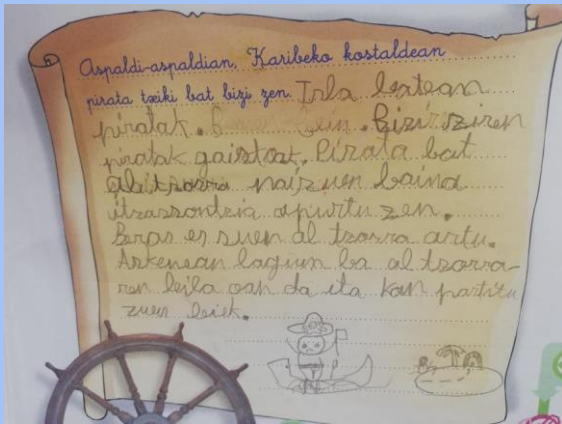 Aspaldi-aspaldian, Karibeko kostaldean
pirata txiki bat bizi zen. Irla batean
piratak. Bizi ziren
piratak gaistoak. Pirata bat
altxorra nai zuen baina
itzassontzia apurtu zen.
Beras es zuen al tzorra artu.
Askenean lagun ba al tzorra-
ren bila oan da ita kan partitu
zuen beiek.